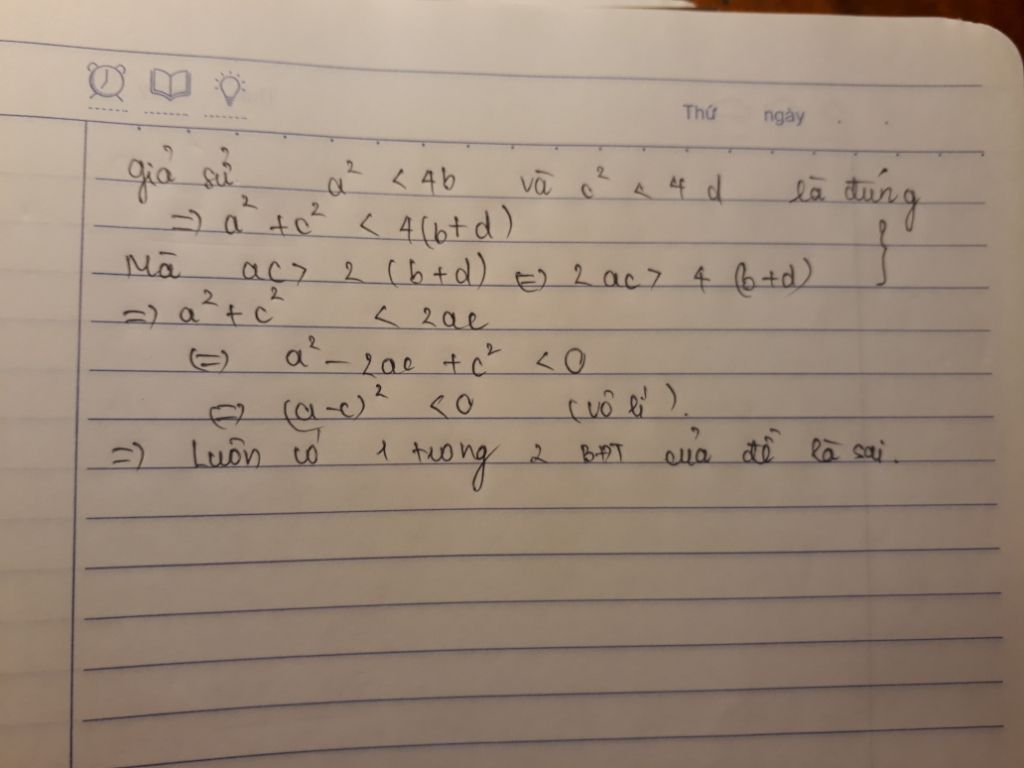 Thứ ngày
giả sử a² < 4b và c² < 4d là đúng
=> a² + c² < 4(b+d)
Mà ac > 2 (b+d) <=> 2ac > 4 (b+d) }
=> a² + c² < 2ac
<=> a² - 2ac + c² < 0
<=> (a-c)² < 0 (vô lí).
=> Luôn có 1 trong 2 BĐT của đề là sai.